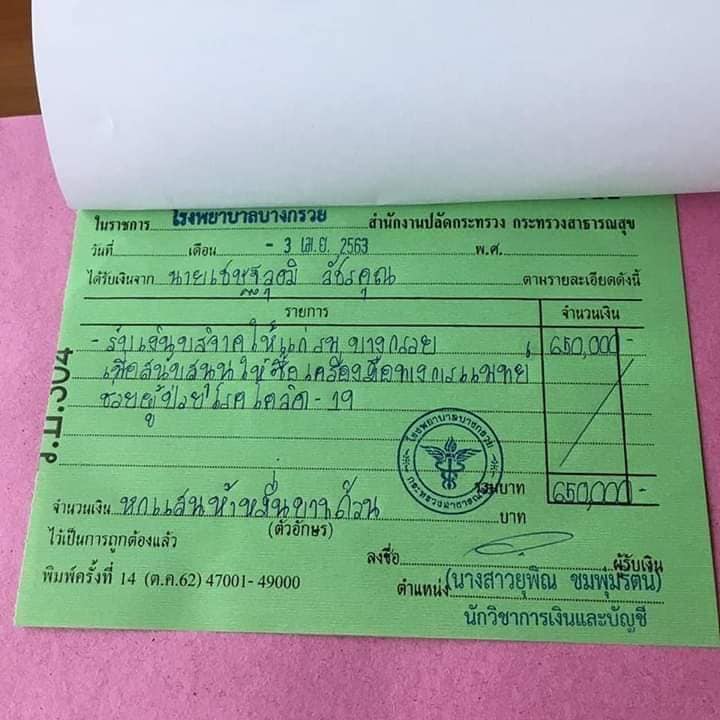 ในราชการ โรงพยาบาลบางกรวย สำนักงานปลัดกระทรวง กระทรวงสาธารณสุข
วันที่ เดือน - 3 เม.ย. 2563 พ.ศ.
ได้รับเงินจาก นายเชษฐวุฒิ วัชรคุณ ตามรายละเอียดดังนี้
รายการ จำนวนเงิน
- รับเงินบริจาคให้แก่ รพ. บางกรวย 650,000 -
เพื่อสนับสนุนให้ซื้อเครื่องมือทางการแพทย์
ช่วยผู้ป่วยโรคโควิด - 19
ร.บ.304
โรงพยาบาลบางกรวย
กระทรวงสาธารณสุข
รวมบาท 650,000 -
จำนวนเงิน หกแสนห้าหมื่นบาทถ้วน บาท
(ตัวอักษร)
ไว้เป็นการถูกต้องแล้ว
ลงชื่อ ผู้รับเงิน
พิมพ์ครั้งที่ 14 (ต.ค.62) 47001- 49000
ตำแหน่ง (นางสาวยุพิณ ชมพุ่มรัตน์)
นักวิชาการเงินและบัญชี